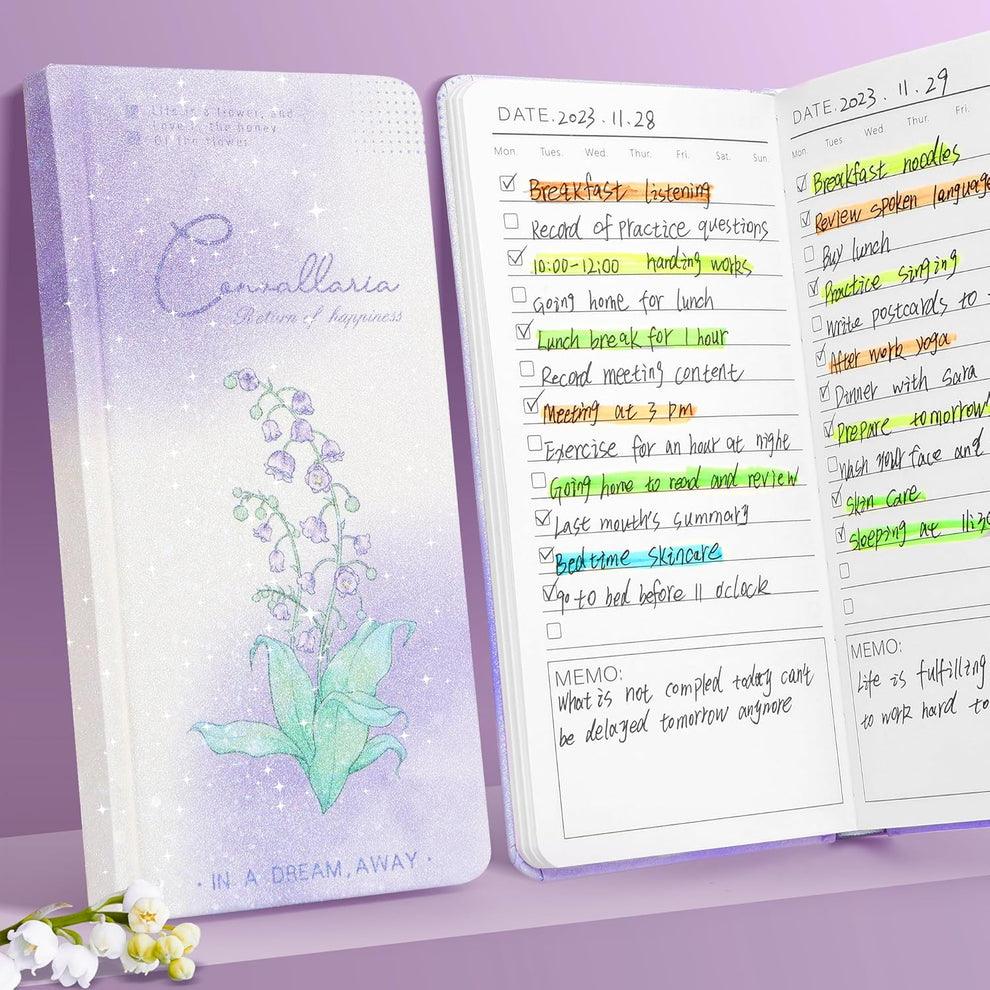 Life is a flower, and
Love is the honey
Of the flower
Convallaria
Return of happiness
· IN A DREAM, AWAY ·
DATE. 2023. 11. 28
Mon. Tues. Wed. Thur. Fri. Sat. Sun.
Breakfast listening
Record of Practice questions
10:00-12:00 harding works
Going home for lunch
Lunch break for 1 hour
Record meeting content
Meeting at 3 pm
Exercise for an hour at night
Going home to read and review
Last mouth's summary
Bedtime skincare
go to bed before 11 o'clock
MEMO:
What is not compled today can't
be delayed tomorrow anynore
DATE. 2023. 11. 29
Mon. Tues Wed. Thur. Fri.
Breakfast noodles
Review spoken language
Buy lunch
Practice singing
Write postcards to
After work yoga
Dinner with Sara
Prepare tomorrow
wash your face and
Skin Care
Sleeping at
MEMO:
Life is fulfilling
to work hard to